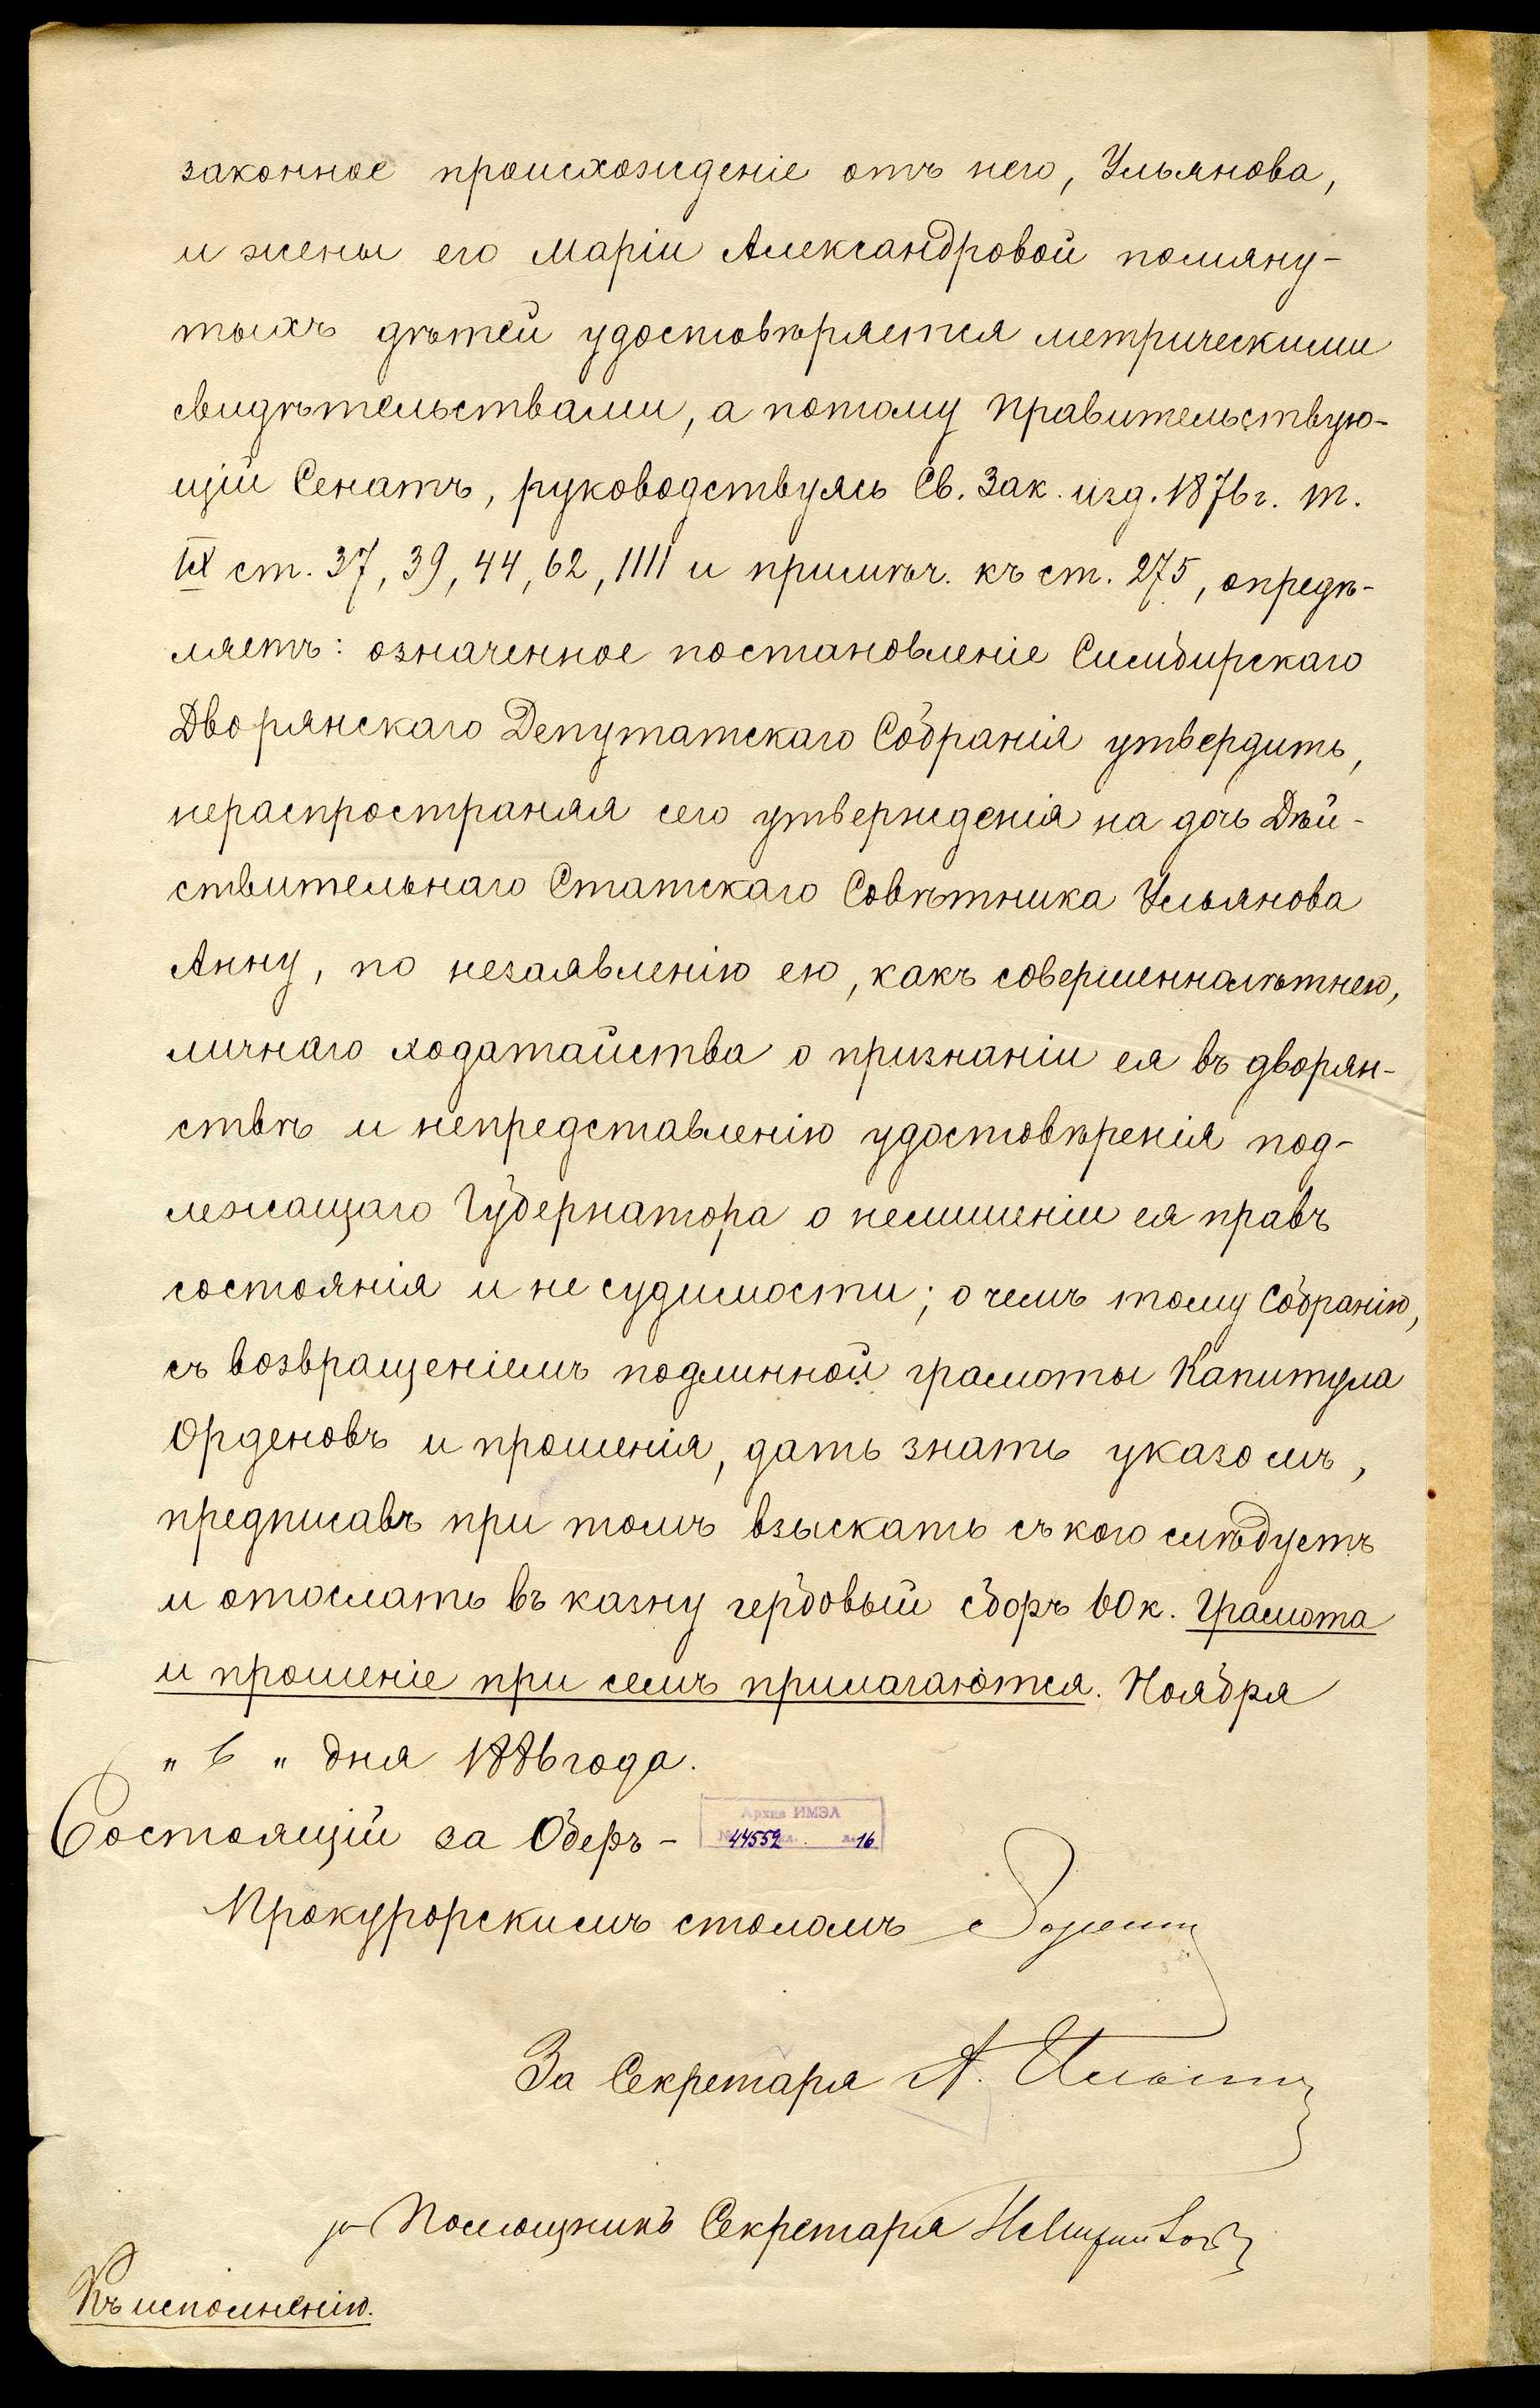 законное происхожденіе отъ него, Ульянова,
и жены его Маріи Александровой помяну-
тыхъ дѣтей удостовѣряется метрическими
свидѣтельствами, а потому Правительствую-
щій Сенатъ, руководствуясь Св. Зак. изд. 1876 г. т.
IX ст. 37, 39, 44, 62, 1111 и примѣч. къ ст. 275, опредѣ-
ляетъ: означенное постановленіе Симбирскаго
Дворянскаго Депутатскаго Собранія утвердить,
нераспространяя сего утвержденія на дочь Дѣй-
ствительнаго Статскаго Совѣтника Ульянова
Анну, по незаявленію ею, какъ совершеннолѣтнею,
личнаго ходатайства о признаніи ея въ дворян-
ствѣ и непредставленію удостовѣренія под-
лежащаго Губернатора о нелишеніи ея правъ
состоянія и не судимости; о чемъ тому Собранію,
съ возвращеніемъ подлинной грамоты Капитула
Орденовъ и прошенія, дать знать указомъ,
предписавъ при томъ взыскать съ кого слѣдуетъ
и отослать въ казну гербовый сборъ 60 к. Грамота
и прошеніе при семъ прилагаются. Ноября
„ 6 „ дня 1886 года.
Состоящій за Оберъ-
Архив ИМЭЛ
44552 16
Прокурорскимъ столомъ
За Секретаря А.
Помощникъ Секретаря
Къ исполненію.